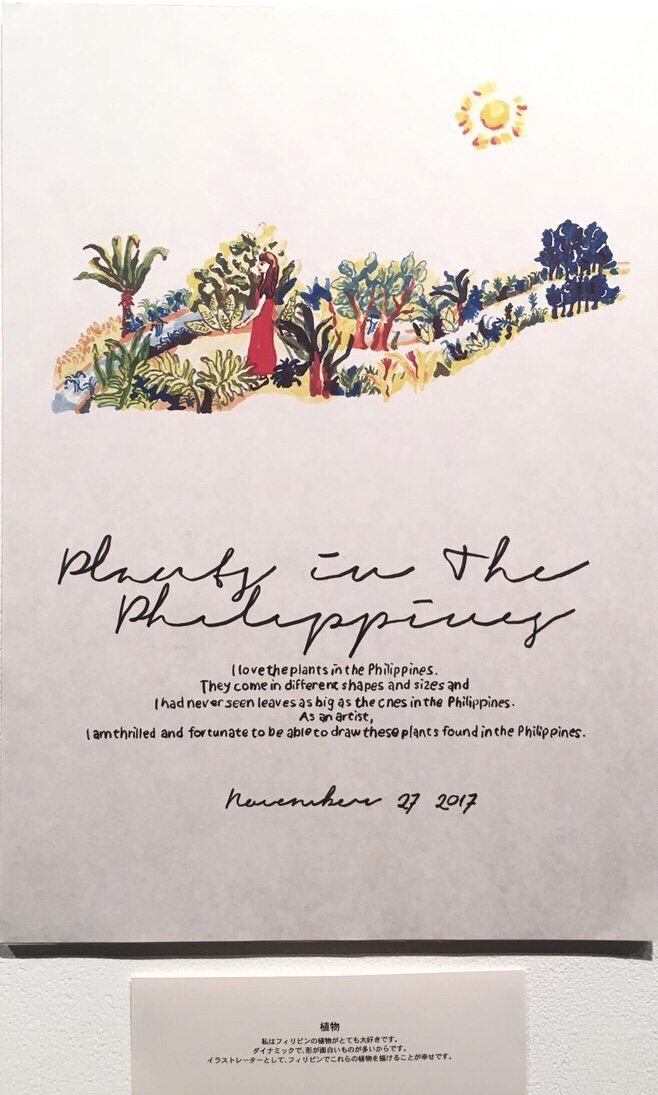 Plants in the
Philippines
I love the plants in the Philippines.
They come in different shapes and sizes and
I had never seen leaves as big as the ones in the Philippines.
As an artist,
I am thrilled and fortunate to be able to draw these plants found in the Philippines.
November 27 2017
植物
私はフィリピンの植物がとても大好きです。
ダイナミックで、形が面白いものが多いからです。
イラストレーターとして、フィリピンでこれらの植物を描けることが幸せです。